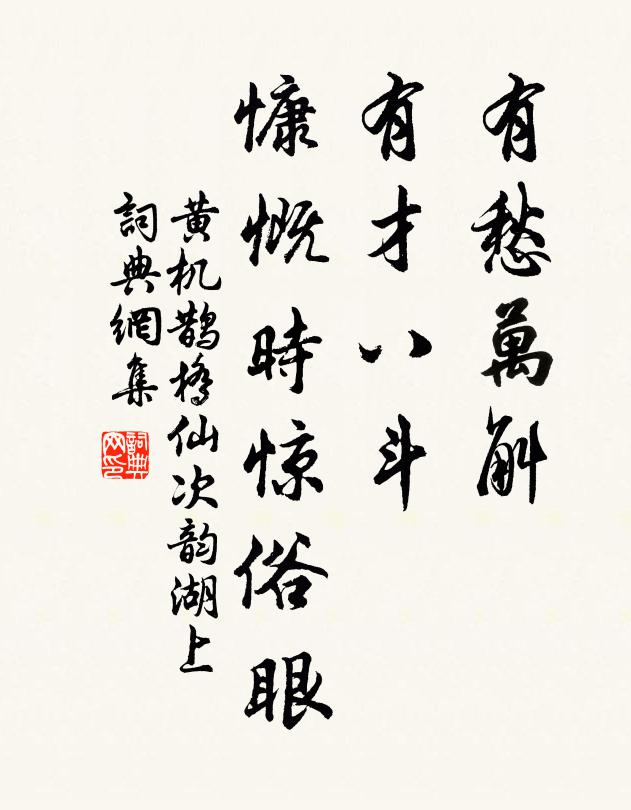 有愁萬斛
有才八斗
慷慨時惊俗眼
黄机鹊橋仙次韵湖上
詞典網集
詞典网印